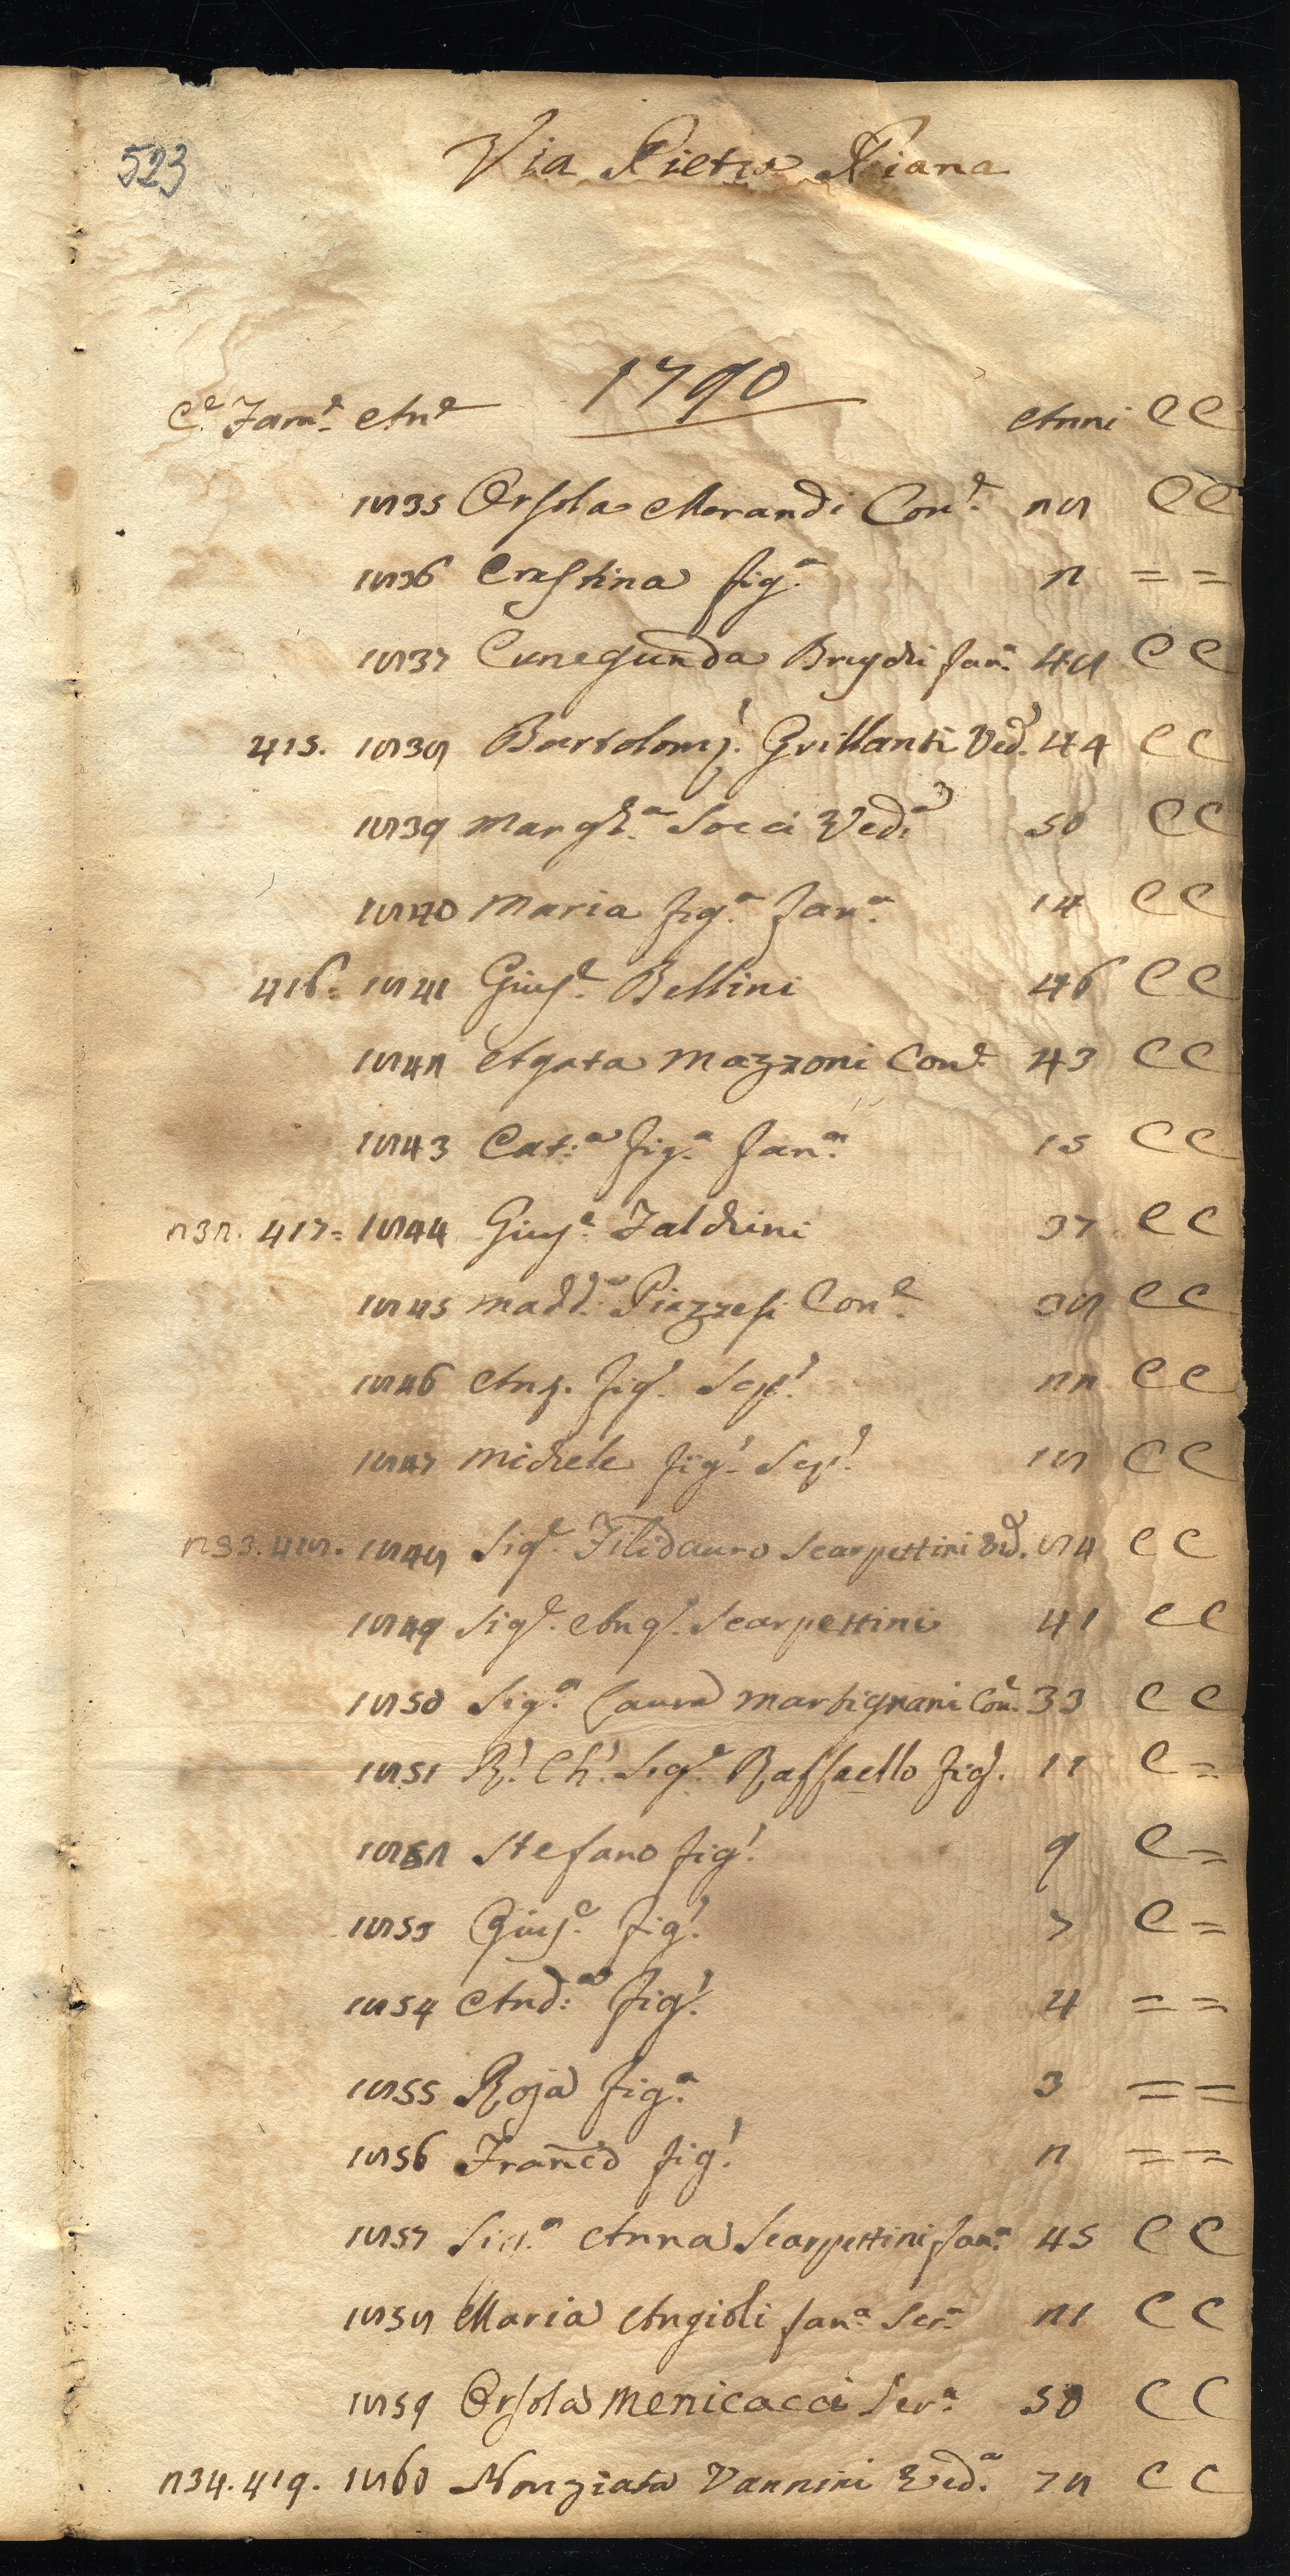 523
Via Pietra Piana
1790
C.e Fam.e An.e Anni C C
1835 Orsola Morandi Con.e 28 C C
1836 Crestina fig.a 2 = =
1837 Cunegunda Brychi fan.a 48 C C
415. 1838 Bartolom.o Grillanti Ved.o 44 C C
1839 Margh.a Socci Ved.a 50 C C
1840 Maria fig.a fan.a 14 C C
416. 1841 Gius.e Bellini 46 C C
1842 Agata Mazzoni Con.e 43 C C
1843 Cat.a fig.a fan.a 15 C C
232. 417. 1844 Gius.e Faldini 37 C C
1845 Madd.a Piazzesi Con.e 38 C C
1846 Ang. fig.o Scap.o 22 C C
1847 Michele fig.o Scap.o 18 C C
233. 418. 1848 Sig.e Filidauro Scarpettini Ved.o 84 C C
1849 Sig.e Ang.o Scarpettini 41 C C
1850 Sig.a Laura Martignani Con.e 33 C C
1851 R.o Ch.o Sig.e Raffaello fig.o 11 C =
1852 Stefano fig.o 9 C =
1853 Gius.e fig.o 7 C =
1854 And.a fig.o 4 = =
1855 Rosa fig.a 3 = =
1856 Franc.o fig.o 2 = =
1857 Sig.a Anna Scarpettini fan.a 45 C C
1858 Maria Angioli fan.a Ser.a 21 C C
1859 Orsola Menicacci Ser.a 50 C C
234. 419. 1860 Nonziata Vannini Ved.a 78 C C